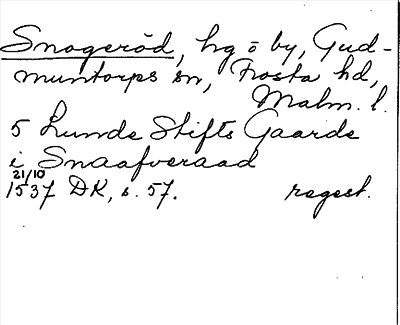 Snogeröd, hg o by, Gud-
muntorps sn, Frosta hd,
Malm. l.
5 Lunde Stifts Gaarde
i Snaafveraad
21/10
1537 DK, s. 57. regest.